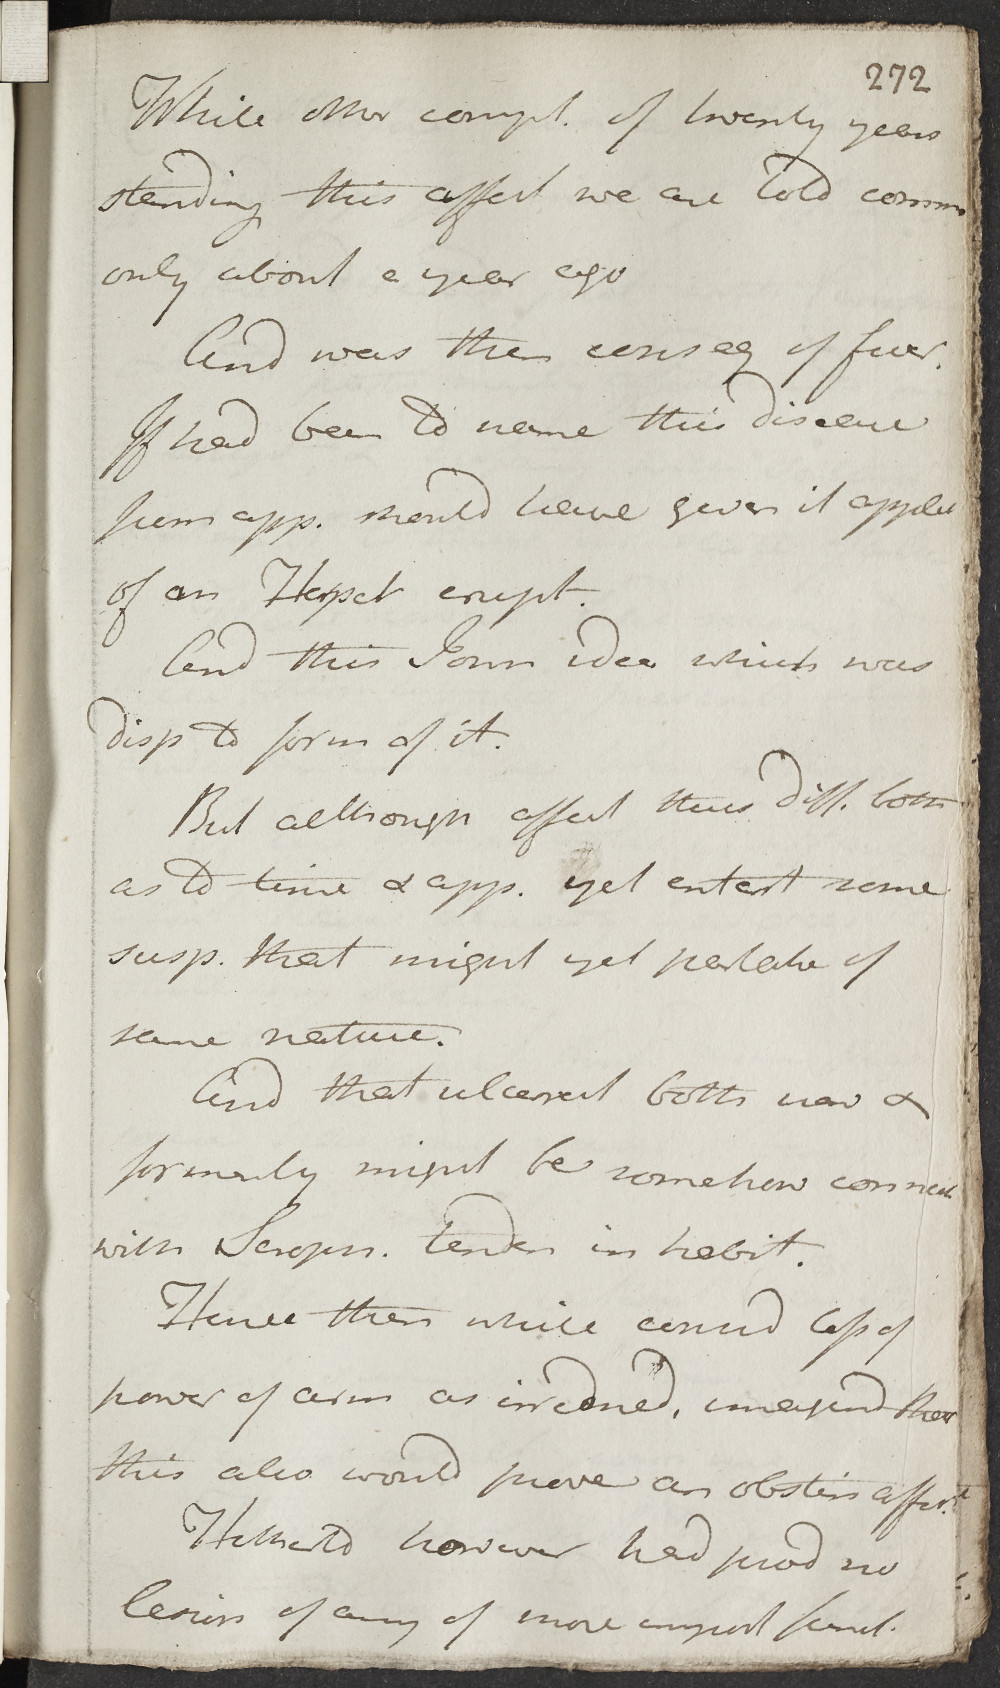 272
While other compl. of twenty years
standing this affect we are told comm
only about a year ago
And was then conseq of fever.
If had been to name this disease
from app. should have given it appel
of an Herpet erupt.
And this I own idea which was
disp to form of it.
But although affect thus diff. both
as to time & app. yet entert some
susp. that might yet partake of
same nature.
And that ulcerat both now &
formerly might be somehow connect
with Scroph. tenden in habit.
Hence then while consid loss of
power of arm as irremed, imagined that
this also would prove an obstin affect
Hitherto however had prod no
lesion of any of more import funct.